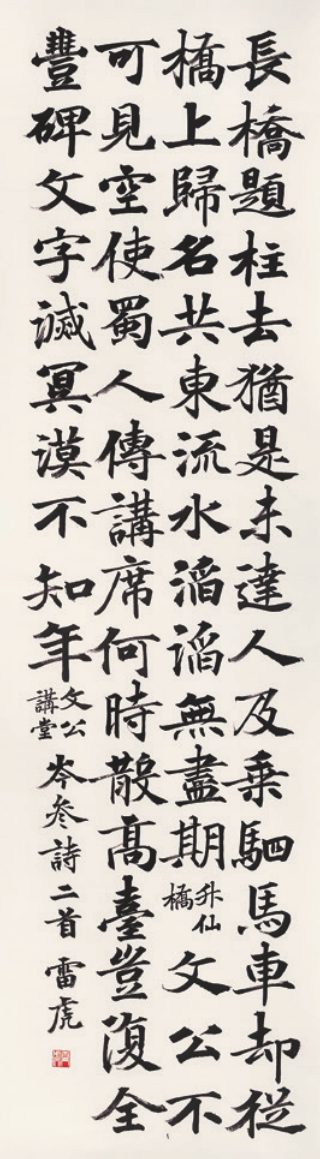 長橋題柱去猶是未達人及乘駟馬車却從
橋上歸名共東流水滔滔無盡期升仙橋文公不
可見空使蜀人傳講席何時散高臺豈復全
豐碑文字滅冥漠不知年文公講堂岑參詩二首雷虎